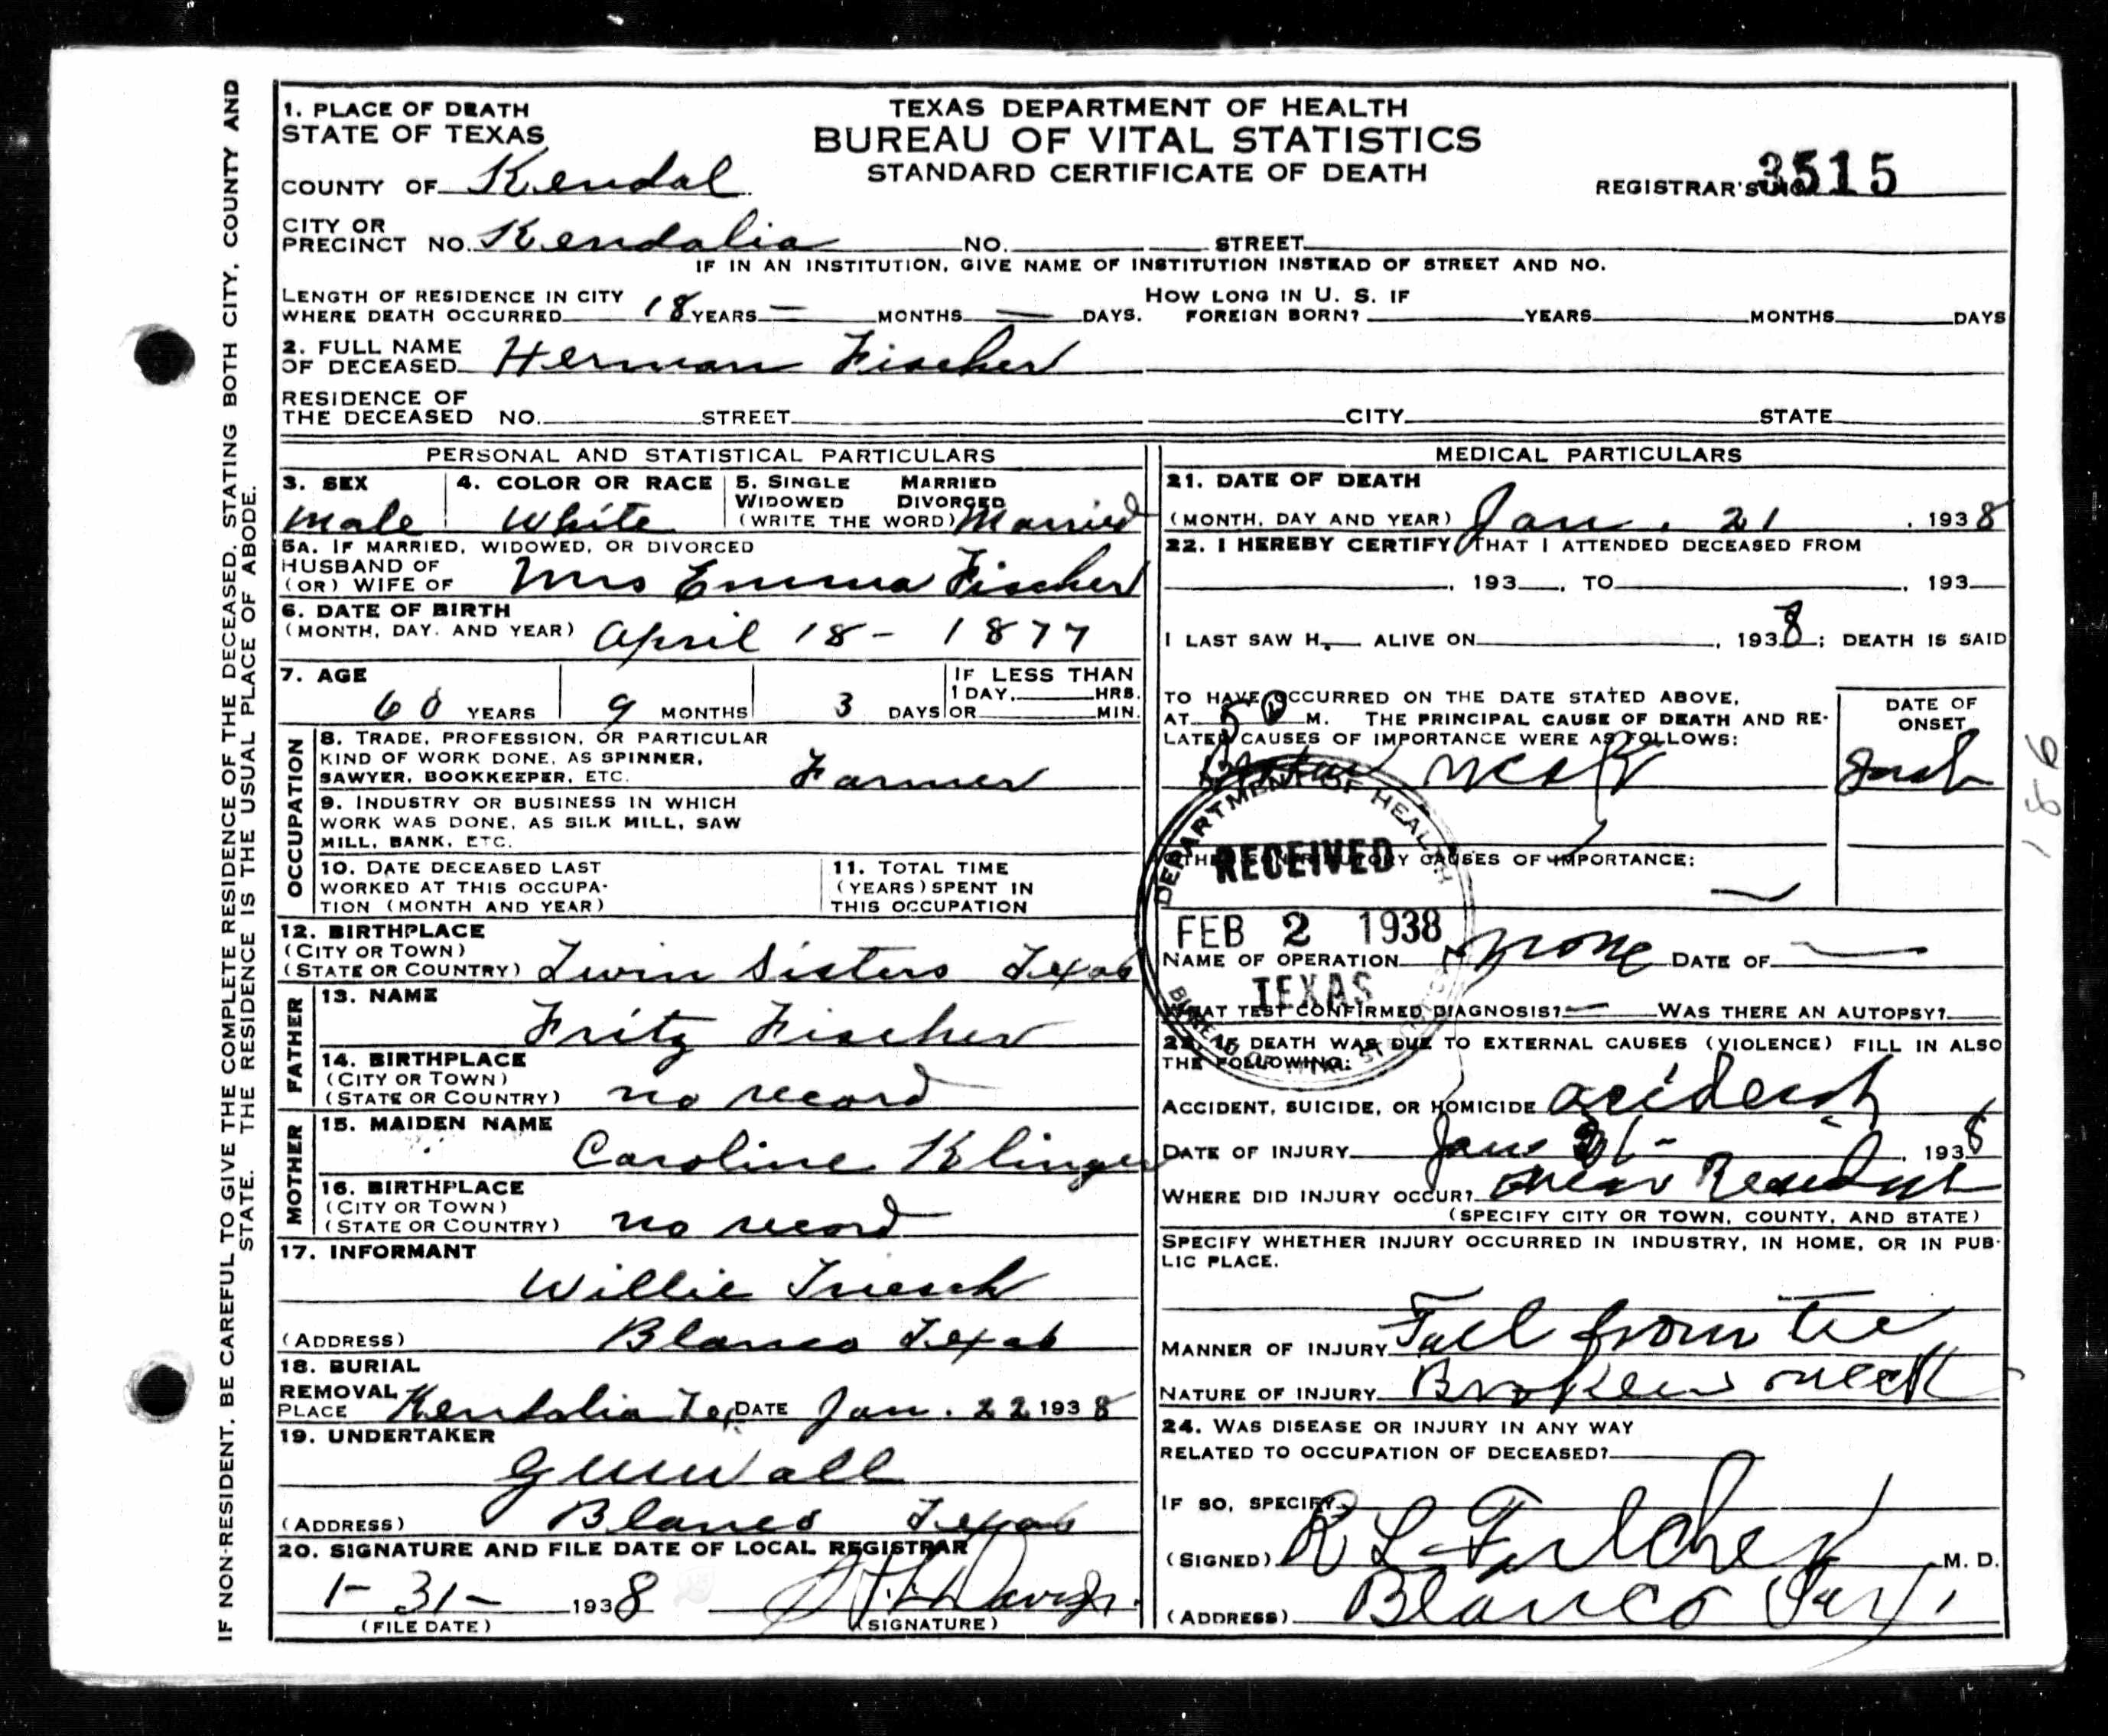 IF NON-RESIDENT. BE CAREFUL TO GIVE THE COMPLETE RESIDENCE OF THE DECEASED, STATING BOTH CITY, COUNTY AND
STATE. THE RESIDENCE IS THE USUAL PLACE OF ABODE.
1. PLACE OF DEATH
STATE OF TEXAS
TEXAS DEPARTMENT OF HEALTH
BUREAU OF VITAL STATISTICS
STANDARD CERTIFICATE OF DEATH
COUNTY OF Kendal
REGISTRAR'S NO. 3515
CITY OR
PRECINCT NO. Kendalia NO. STREET
IF IN AN INSTITUTION, GIVE NAME OF INSTITUTION INSTEAD OF STREET AND NO.
LENGTH OF RESIDENCE IN CITY
WHERE DEATH OCCURRED 18 YEARS — MONTHS — DAYS.
HOW LONG IN U. S. IF
FOREIGN BORN? YEARS MONTHS DAYS
2. FULL NAME
OF DECEASED Herman Fischer
RESIDENCE OF
THE DECEASED NO. STREET CITY STATE
PERSONAL AND STATISTICAL PARTICULARS
3. SEX
male
4. COLOR OR RACE
White
5. SINGLE MARRIED
WIDOWED DIVORCED
(WRITE THE WORD) Married
5A. IF MARRIED, WIDOWED, OR DIVORCED
HUSBAND OF
(OR) WIFE OF Mrs Emma Fischer
6. DATE OF BIRTH
(MONTH, DAY. AND YEAR) April 18 - 1877
7. AGE
60 YEARS 9 MONTHS 3 DAYS
IF LESS THAN
1 DAY, HRS.
OR MIN.
OCCUPATION
8. TRADE, PROFESSION, OR PARTICULAR
KIND OF WORK DONE, AS SPINNER,
SAWYER, BOOKKEEPER, ETC. Farmer
9. INDUSTRY OR BUSINESS IN WHICH
WORK WAS DONE, AS SILK MILL, SAW
MILL, BANK, ETC.
10. DATE DECEASED LAST
WORKED AT THIS OCCUPA-
TION (MONTH AND YEAR)
11. TOTAL TIME
(YEARS) SPENT IN
THIS OCCUPATION
12. BIRTHPLACE
(CITY OR TOWN)
(STATE OR COUNTRY) Twin Sisters Texas
FATHER
13. NAME
Fritz Fischer
14. BIRTHPLACE
(CITY OR TOWN)
(STATE OR COUNTRY) no record
MOTHER
15. MAIDEN NAME
Caroline Klinger
16. BIRTHPLACE
(CITY OR TOWN)
(STATE OR COUNTRY) no record
17. INFORMANT
Willie Triesch
(ADDRESS) Blanco Texas
18. BURIAL
REMOVAL
PLACE Kendalia Tex DATE Jan. 22 1938
19. UNDERTAKER
(ADDRESS) Blanco Texas
20. SIGNATURE AND FILE DATE OF LOCAL REGISTRAR
1-31- 1938
(FILE DATE) (SIGNATURE)
MEDICAL PARTICULARS
21. DATE OF DEATH
(MONTH, DAY AND YEAR) Jan. 21, 1938
22. I HEREBY CERTIFY THAT I ATTENDED DECEASED FROM
, 193 , TO , 193
I LAST SAW H ALIVE ON , 1938; DEATH IS SAID
TO HAVE OCCURRED ON THE DATE STATED ABOVE,
AT M. THE PRINCIPAL CAUSE OF DEATH AND RE-
LATED CAUSES OF IMPORTANCE WERE AS FOLLOWS:
DATE OF
ONSET
neck
OTHER CONTRIBUTORY CAUSES OF IMPORTANCE:
DEPARTMENT OF HEALTH
RECEIVED
FEB 2 1938
TEXAS
NAME OF OPERATION none DATE OF —
WHAT TEST CONFIRMED DIAGNOSIS? — WAS THERE AN AUTOPSY?
23. IF DEATH WAS DUE TO EXTERNAL CAUSES (VIOLENCE) FILL IN ALSO
THE FOLLOWING:
ACCIDENT, SUICIDE, OR HOMICIDE acident
DATE OF INJURY Jan 21- , 1938
WHERE DID INJURY OCCUR? near
(SPECIFY CITY OR TOWN, COUNTY, AND STATE)
SPECIFY WHETHER INJURY OCCURRED IN INDUSTRY, IN HOME, OR IN PUB-
LIC PLACE.
MANNER OF INJURY Fall from tree
NATURE OF INJURY Broken neck
24. WAS DISEASE OR INJURY IN ANY WAY
RELATED TO OCCUPATION OF DECEASED?
IF SO, SPECIFY
(SIGNED) R L Fulcher M. D.
(ADDRESS) Blanco
186